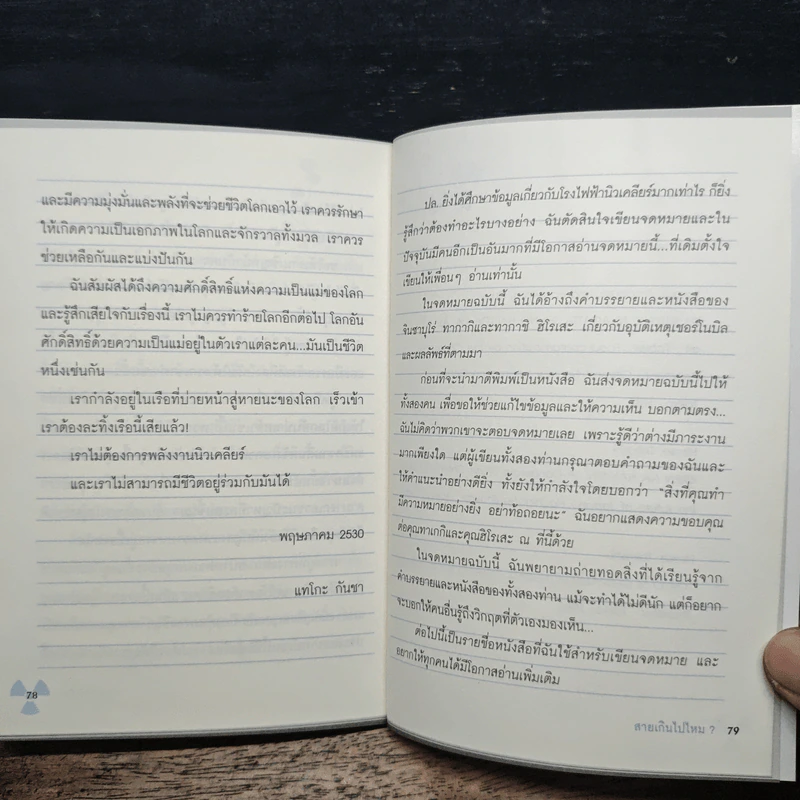 และมีความมุ่งมั่นและพลังที่จะช่วยชีวิตโลกเอาไว้ เราควรรักษา
ให้เกิดความเป็นเอกภาพในโลกและจักรวาลทั้งมวล เราควร
ช่วยเหลือกันและแบ่งปันกัน
ฉันสัมผัสได้ถึงความศักดิ์สิทธิ์แห่งความเป็นแม่ของโลก
และรู้สึกเสียใจกับเรื่องนี้ เราไม่ควรทำร้ายโลกอีกต่อไป โลกอัน
ศักดิ์สิทธิ์ด้วยความเป็นแม่อยู่ในตัวเราแต่ละคน...มันเป็นชีวิต
หนึ่งเช่นกัน
เรากำลังอยู่ในเรือที่บ่ายหน้าสู่หายนะของโลก เร็วเข้า
เราต้องละทิ้งเรือนี้เสียแล้ว!
เราไม่ต้องการพลังงานนิวเคลียร์
และเราไม่สามารถมีชีวิตอยู่ร่วมกับมันได้
พฤษภาคม 2530
แทโกะ กันชา
78
ปล. ยิ่งได้ศึกษาข้อมูลเกี่ยวกับโรงไฟฟ้านิวเคลียร์มากเท่าไร ก็ยิ่ง
รู้สึกว่าต้องทำอะไรบางอย่าง ฉันตัดสินใจเขียนจดหมายและใน
ปัจจุบันมีคนอีกเป็นอันมากที่มีโอกาสอ่านจดหมายนี้...ที่เดิมตั้งใจ
เขียนให้เพื่อนๆ อ่านเท่านั้น
ในจดหมายฉบับนี้ ฉันได้อ้างถึงคำบรรยายและหนังสือของ
จินซาบุโร่ ทากากิและทากาชิ ฮิโรเสะ เกี่ยวกับอุบัติเหตุเชอร์โนบิล
และผลลัพธ์ที่ตามมา
ก่อนที่จะนำมาตีพิมพ์เป็นหนังสือ ฉันส่งจดหมายฉบับนี้ไปให้
ทั้งสองคน เพื่อขอให้ช่วยแก้ไขข้อมูลและให้ความเห็น บอกตามตรง...
ฉันไม่คิดว่าพวกเขาจะตอบจดหมายเลย เพราะรู้ดีว่าต่างมีภาระงาน
มากเพียงใด แต่ผู้เขียนทั้งสองท่านกรุณาตอบคำถามของฉันและ
ให้คำแนะนำอย่างดียิ่ง ทั้งยังให้กำลังใจโดยบอกว่า “สิ่งที่คุณทำ
มีความหมายอย่างยิ่ง อย่าท้อถอยนะ” ฉันอยากแสดงความขอบคุณ
ต่อคุณทาเกกิและคุณฮิโรเสะ ณ ที่นี้ด้วย
ในจดหมายฉบับนี้ ฉันพยายามถ่ายทอดสิ่งที่ได้เรียนรู้จาก
คำบรรยายและหนังสือของทั้งสองท่าน แม้จะทำได้ไม่ดีนัก แต่ก็อยาก
จะบอกให้คนอื่นรู้ถึงวิกฤตที่ตัวเองมองเห็น...
ต่อไปนี้เป็นรายชื่อหนังสือที่ฉันใช้สำหรับเขียนจดหมาย และ
อยากให้ทุกคนได้มีโอกาสอ่านเพิ่มเติม
สายเกินไปไหม ? 79